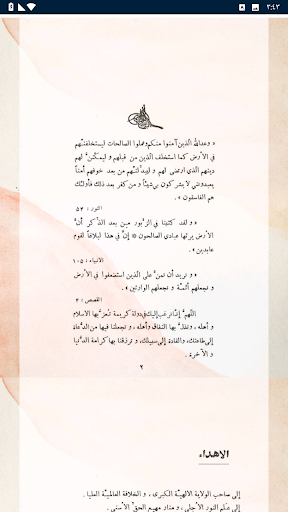 ٣:٤٣
« وعد الله الّذين آمنوا منكم وعملوا الصالحات ليستخلفنّهم
في الأرض كما استخلف الّذين من قبلهم و ليمكّننّ لهم
دينهم الّذي ارتضى لهم و ليبدّلنّهم من بعد خوفهم أمناً
يعبدونني لا يشركون بي شيئاً و من كفر بعد ذلك فأولئك
هم الفاسقون »
النور : ٥٥
« و لقد كتبنا في الزّبور من بعد الذّكر أنّ
الأرض يرثها عبادي الصالحون إنّ في هذا لبلاغاً لقوم
عابدين »
الأنبياء : ١٠٥
« و نريد أن نمنّ على الّذين استضعفوا في الأرض
و نجعلهم أئمّة و نجعلهم الوارثين »
القصص : ٤
اللّهمّ إنّا نرغب إليك في دولة كريمة تُعزّ بها الاسلام
و أهله ، و تذلّ بها النفاق وأهله ، و تجعلنا فيها من الدُّعاة
إلى طاعتك ، والقادة إلى سبيلك ، و ترزقنا بها كرامة الدُّنيا
و الآخرة .
٢
الاهداء
إلى صاحب الولاية الالهيّة الكبرى ، و الخلافة العالميّة العليا .
إلى علم النور الأجلى ، و منار مهيع الحقّ الأسنى .